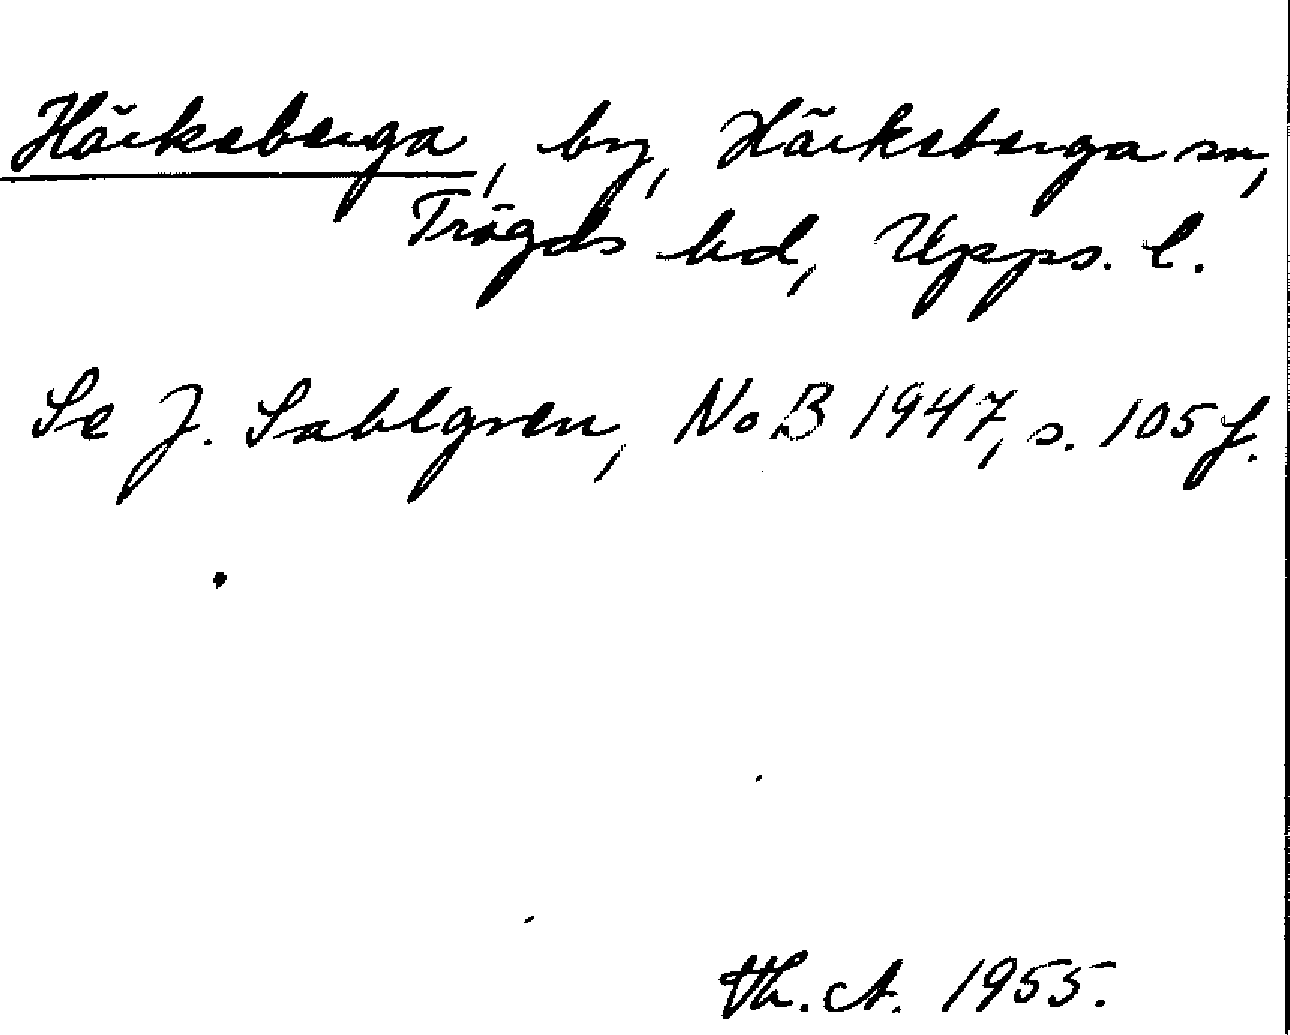 Härkeberga, by, Härkeberga sn,
Trögds hd, Upps. l.
Se J. Sahlgren, NoB 1947, s. 105 f.
Th. A. 1955.